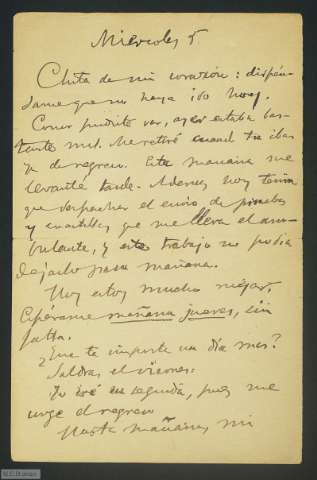 Miércoles 5
Chita de mi corazón: dispén-
same que no haya ido hoy.
Como pudiste ver, ayer estaba bas-
tante mal. Me retiré cuando tu ibas
ya de regreso. Esta mañana me
levanté tarde. Además hoy tenía
que despachar el envío de pruebas
y cuartillas que me lleva el am-
bulante, y este trabajo no podía
dejarlo para mañana.
Hoy estoy mucho mejor.
Espérame mañana jueves, sin
falta.
¿Que te importa un día mas?
Saldras el viernes.
Yo iré en seguida, pues me
urge el regreso
Hasta mañana, mi